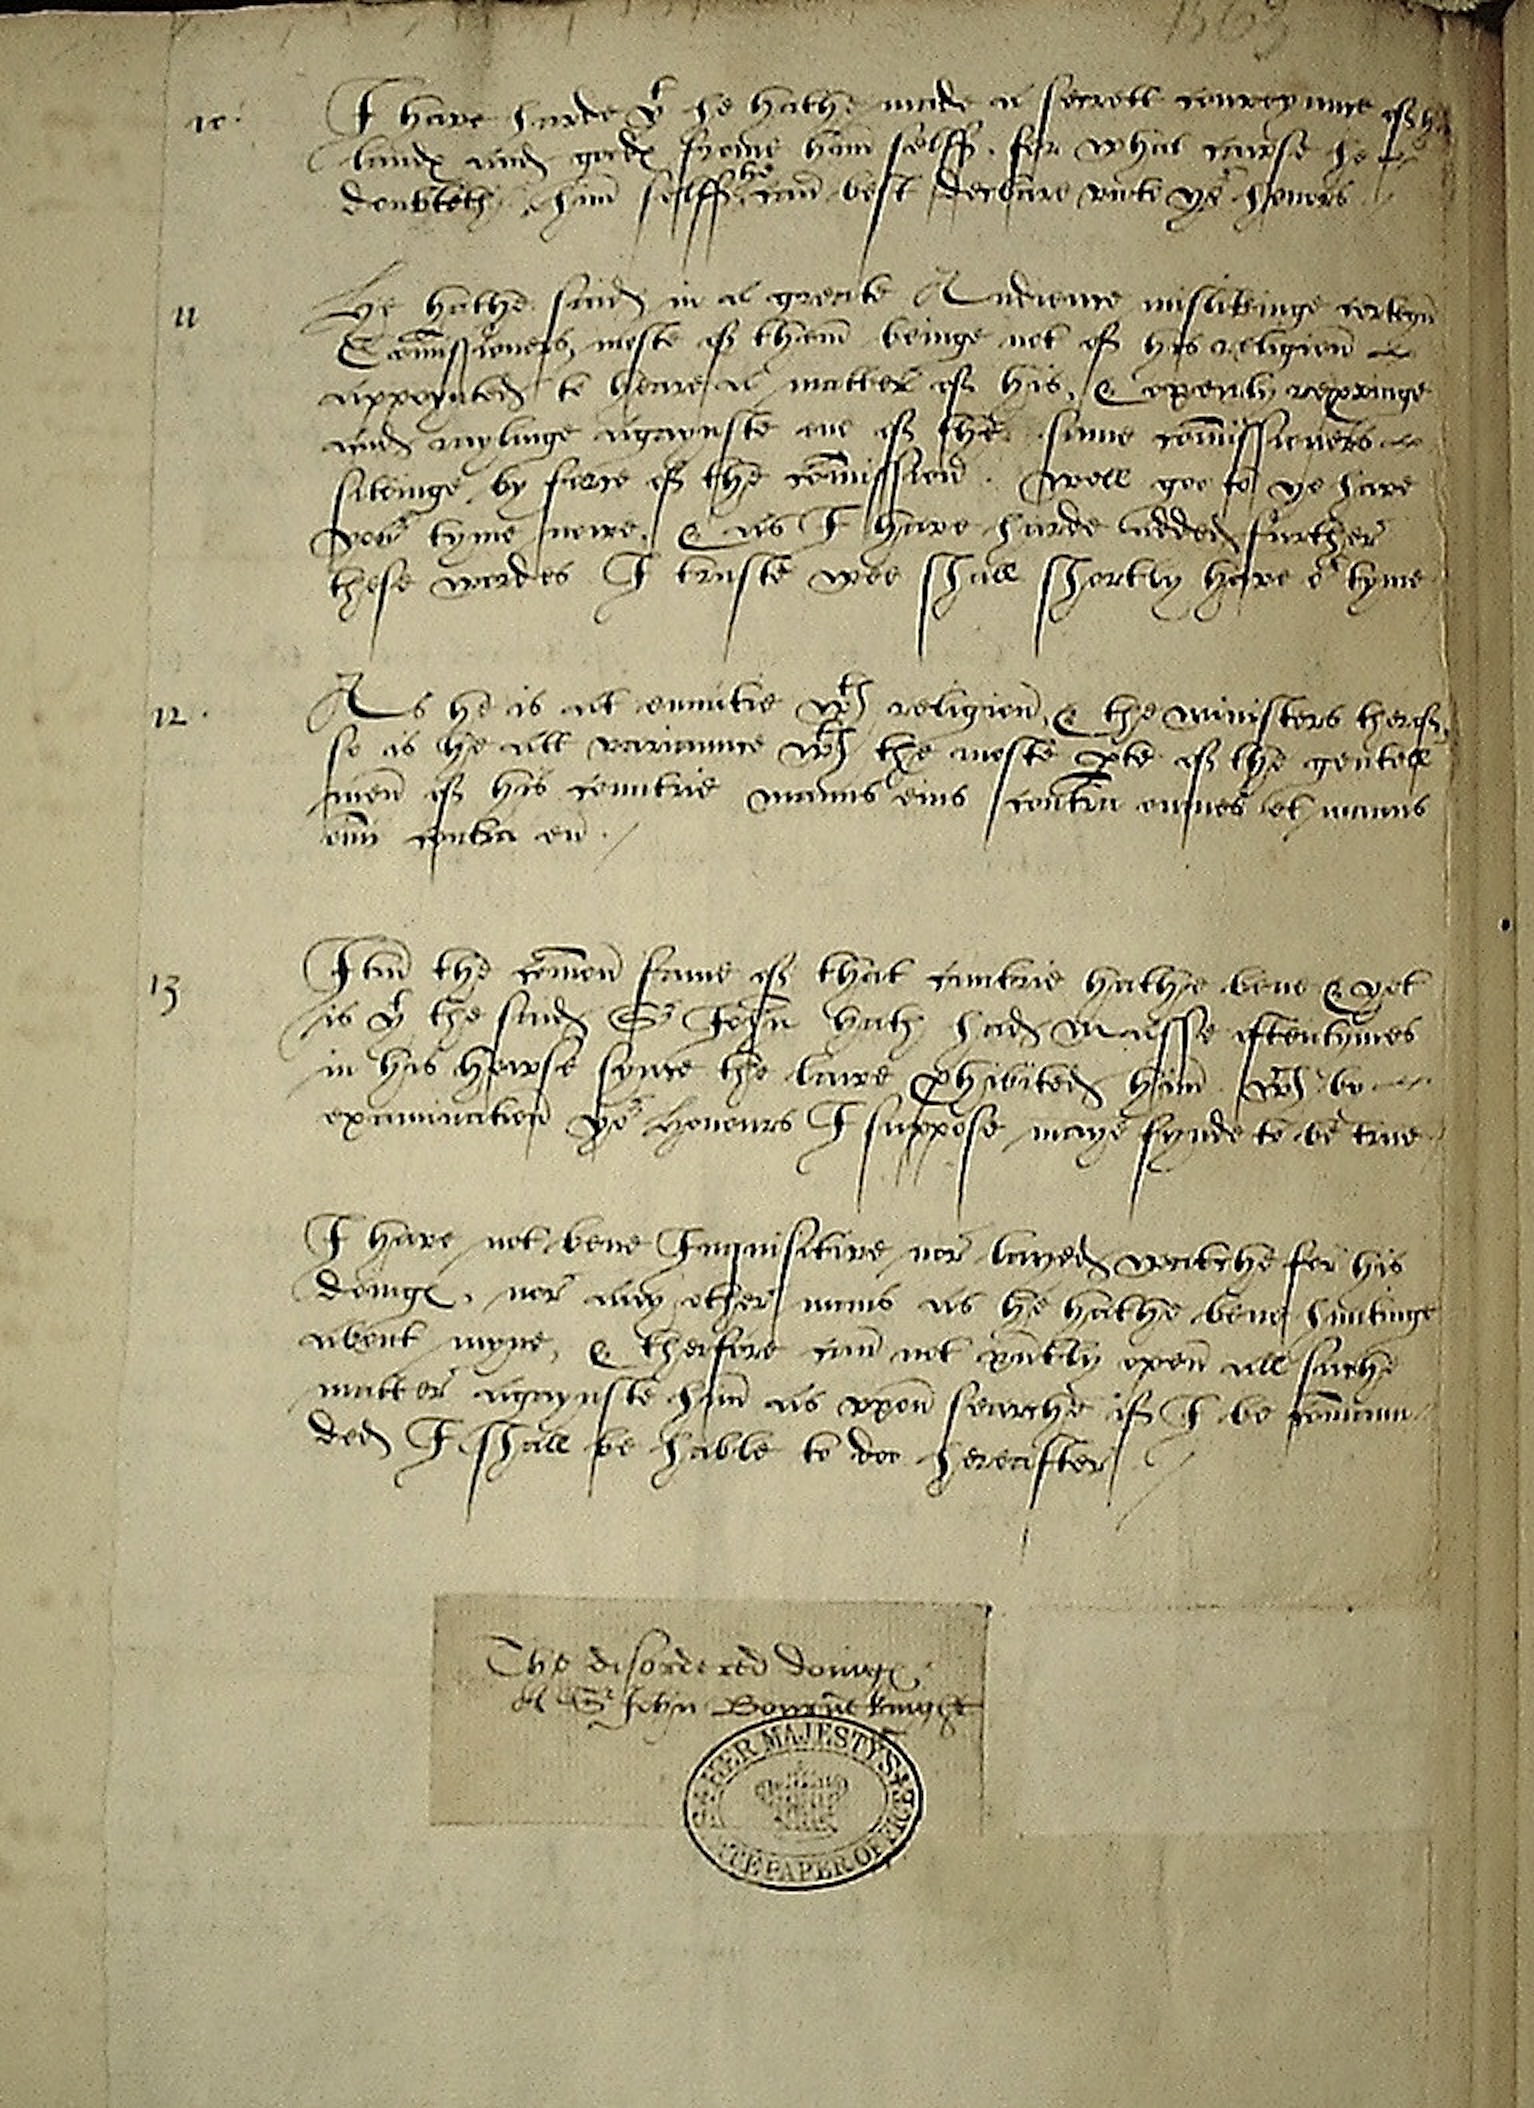 1563
10. I have harde yt he hathe made a secrett conveyance of his
landes and goodes frome him selff. for what cawse he
doubteth him selff he can best declare vnto yor honors.
11 He hathe said in a greate Audience mislikinge certeyn
Comissioners, moste of them beinge not of his religion
appoynted to heare a matter of his, & openly reprouinge
and raylinge agaynste one of the same comissioners
sittinge by force of the comission. Well goe to ye have
your tyme nowe, & as I have harde added further
these wordes I truste wee shall shortly have or tyme
12. As he is att enmitie wth religion, & the ministers therof,
so is he att variaunce wth the moste pte of the gentell
men of his countrie manus eius contra omnes et manus
oim contra eu.
13 Itm the comon fame of that cuntrie hathe bene & yet
is yt the said Sr John hath had Masse oftentymes
in his howse synce the lawe phibited him. wch by
examination yor Honours I suppose maye fynde to be true.
I have not bene Inquisitive nor layed watche for his
doinges, nor any other mans as he hathe bene huntinge
about myne, & therfore can not pntly open all suche
matter agaynste him as vpon searche if I be comaun
ded I shall be hable to doe hereafter.
The disordered doinges
of Sr John Bourne knyght
HER MAJESTY'S
STATE PAPER OFFICE